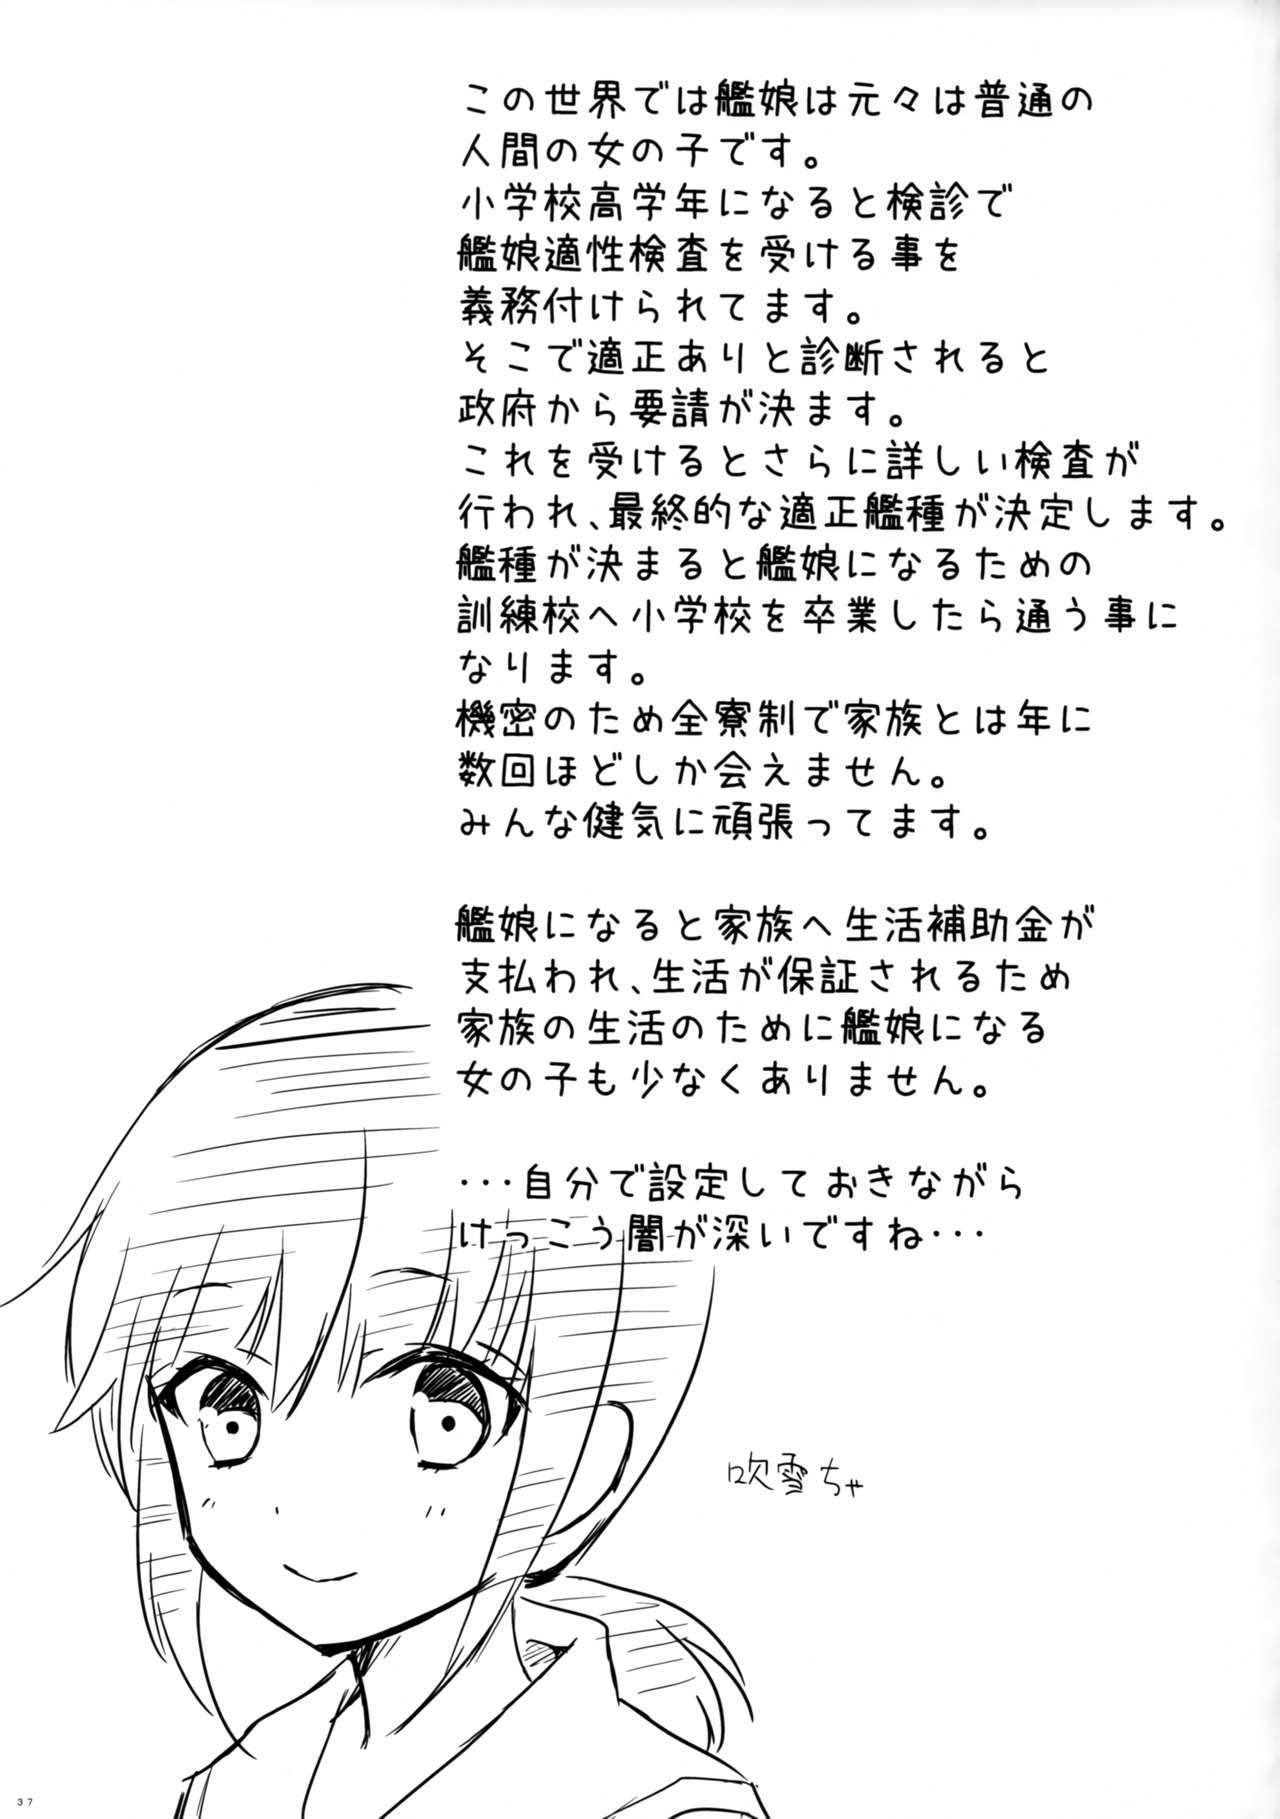 この世界では艦娘は元々は普通の
人間の女の子です。
小学校高学年になると検診で
艦娘適性検査を受ける事を
義務付けられてます。
そこで適正ありと診断されると
政府から要請が決ます。
これを受けるとさらに詳しい検査が
行われ、最終的な適正艦種が決定します。
艦種が決まると艦娘になるための
訓練校へ小学校を卒業したら通う事に
なります。
機密のため全寮制で家族とは年に
数回ほどしか会えません。
みんな健気に頑張ってます。
艦娘になると家族へ生活補助金が
支払われ、生活が保証されるため
家族の生活のために艦娘になる
女の子も少なくありません。
・・・自分で設定しておきながら
けっこう闇が深いですね・・・
吹雪ちゃ
37